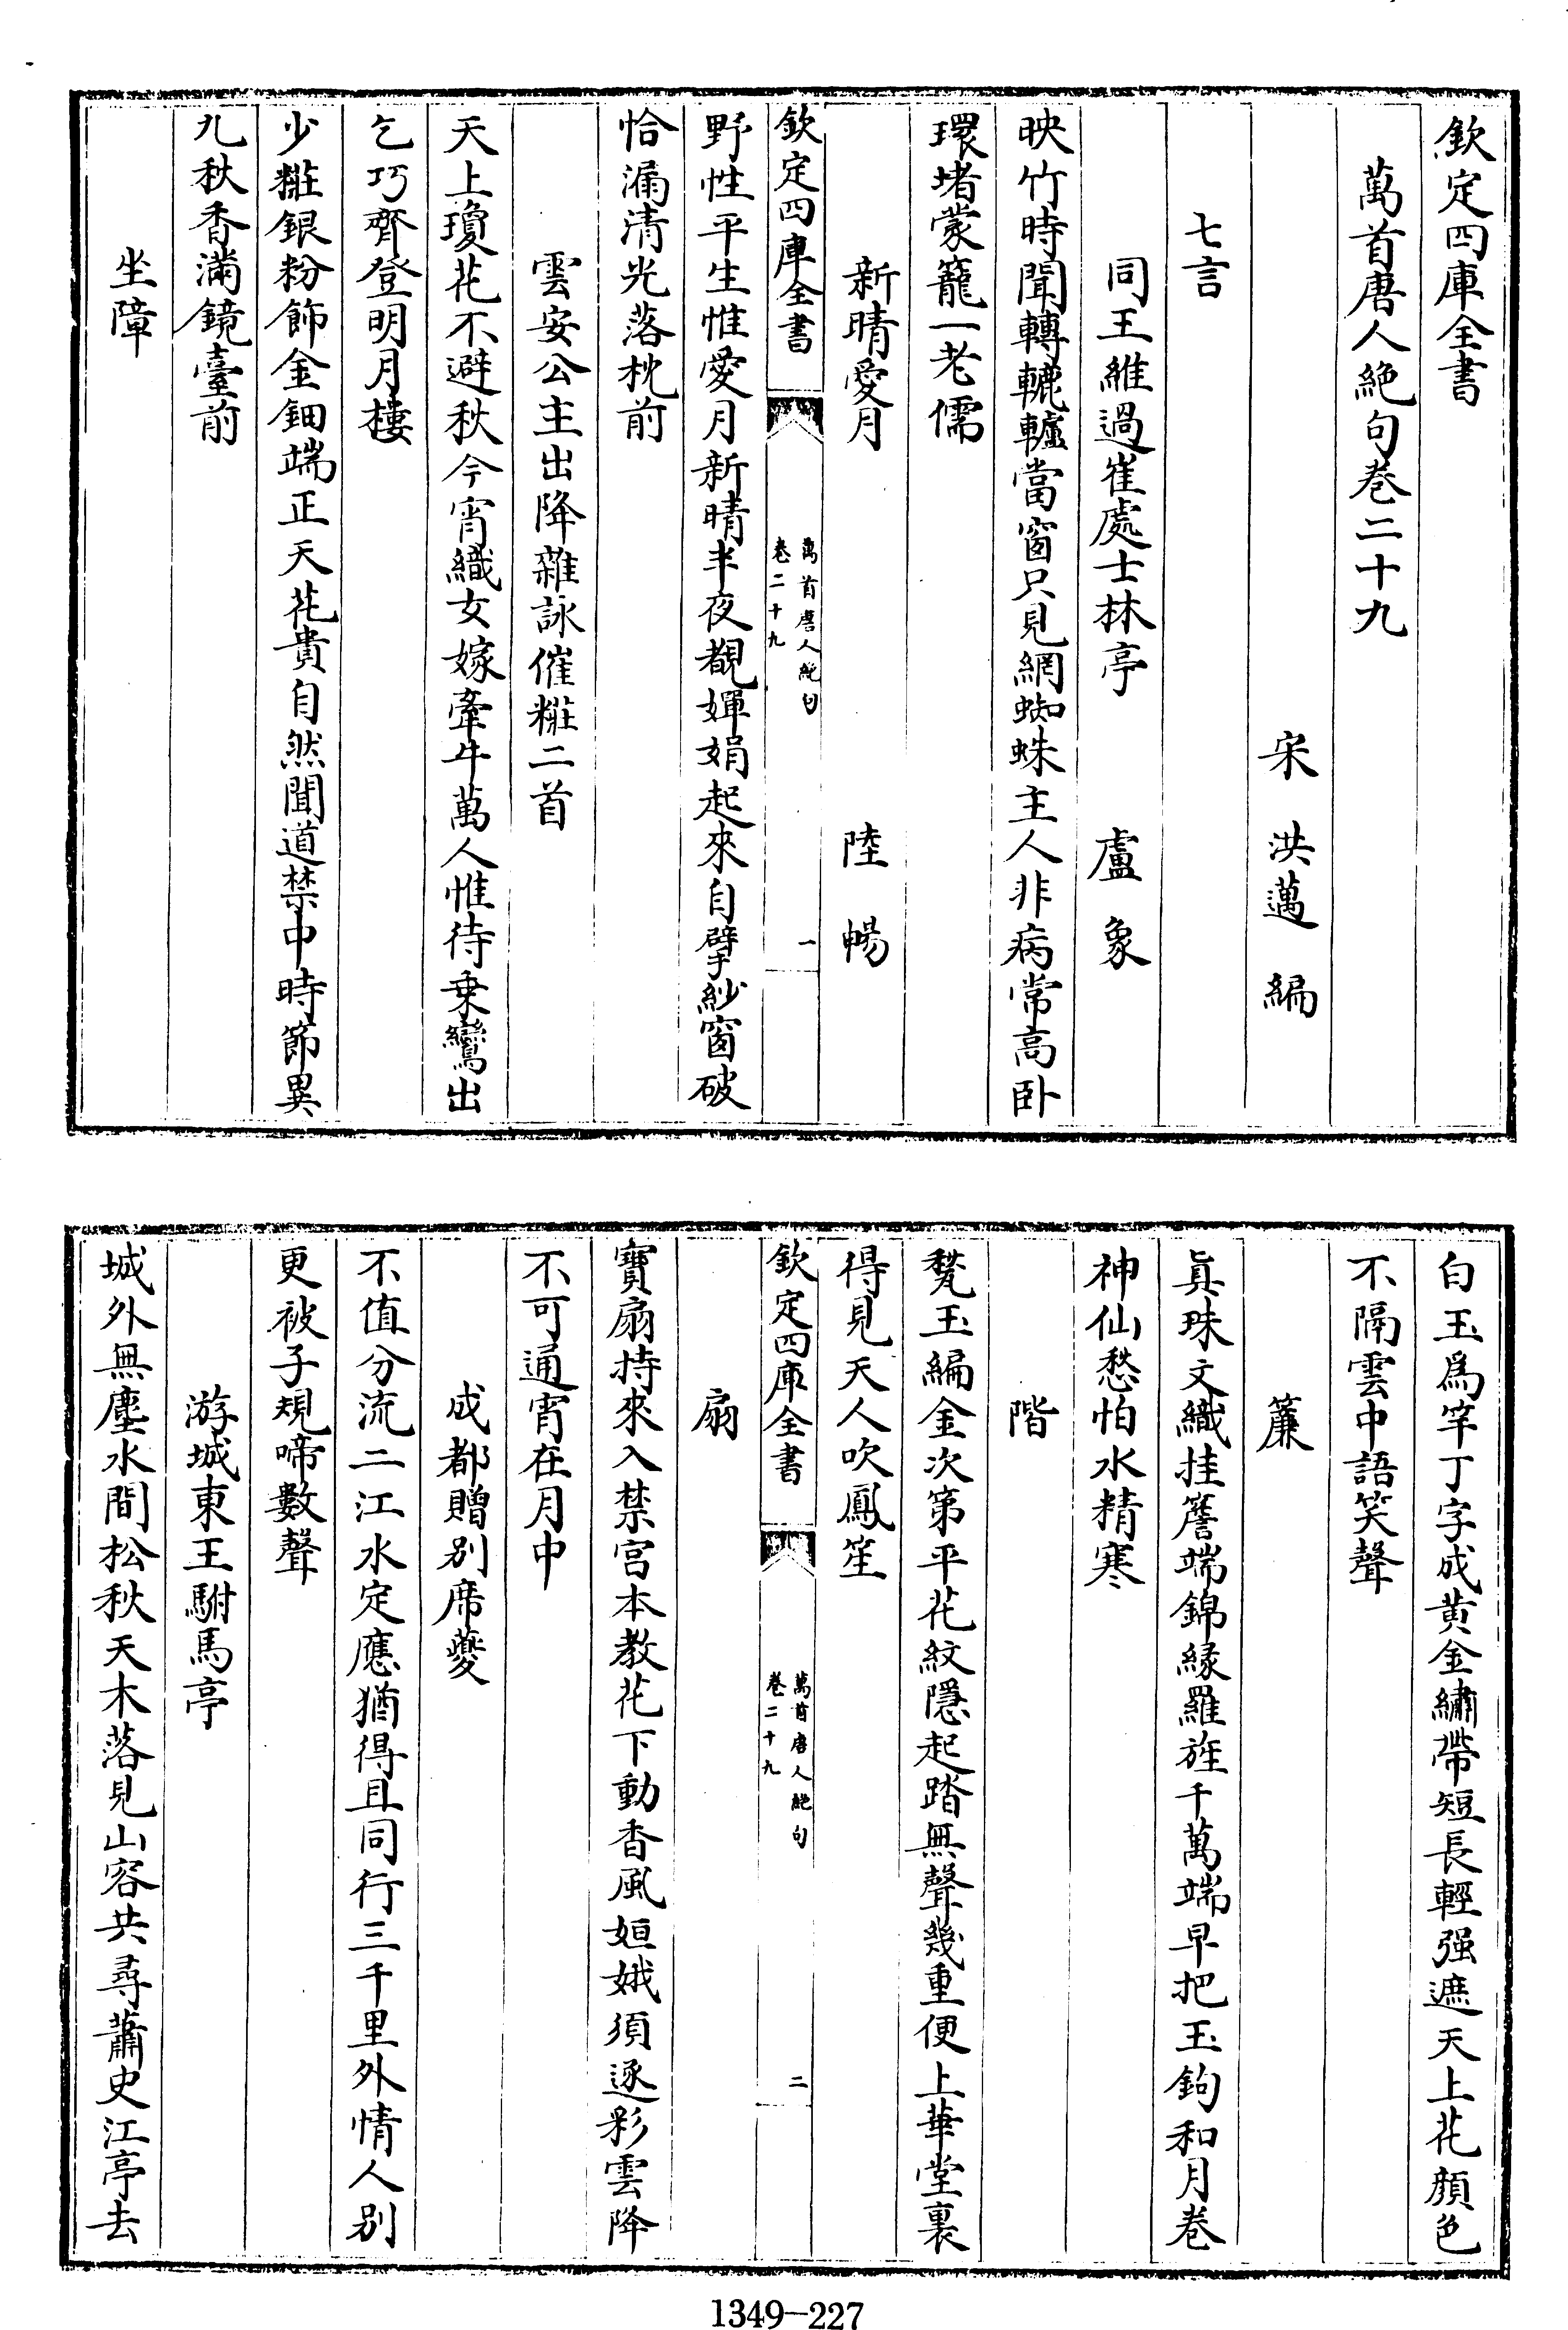 欽定四庫全書
萬首唐人絶句卷二十九
宋 洪邁 編
七言
同王維過崔處士林亭 盧象
映竹時聞轉轆轤當窗只見網蜘蛛主人非病常高卧
環堵蒙籠一老儒
新晴愛月 陸暢
欽定四庫全書
萬首唐人絶句
卷二十九
一
野性平生惟愛月新晴半夜覩嬋娟起來自擘紗窗破
恰漏清光落枕前
雲安公主出降雜詠催糚二首
天上瓊花不避秋今宵織女嫁牽牛萬人惟待乗鸞出
乞巧齊登明月樓
少糚銀粉飾金鈿端正天花貴自然聞道禁中時節異
九秋香滿鏡臺前
坐障
白玉爲竿丁字成黄金繡帶短長輕强遮天上花顔色
不隔雲中語笑聲
簾
眞珠文織挂簷端錦緣羅旌千萬端早把玉鉤和月巻
神仙愁怕水精寒
階
甃玉編金次第平花紋隱起踏無聲幾重便上華堂裏
得見天人吹鳳笙
欽定四庫全書
萬首唐人絶句
卷二十九
二
扇
寳扇持來入禁宫本教花下動香風姮娥須逐彩雲降
不可通宵在月中
成都贈别席夔
不值分流二江水定應猶得且同行三千里外情人别
更被子規啼數聲
游城東王駙馬亭
城外無塵水間松秋天木落見山容共尋蕭史江亭去
1349-227